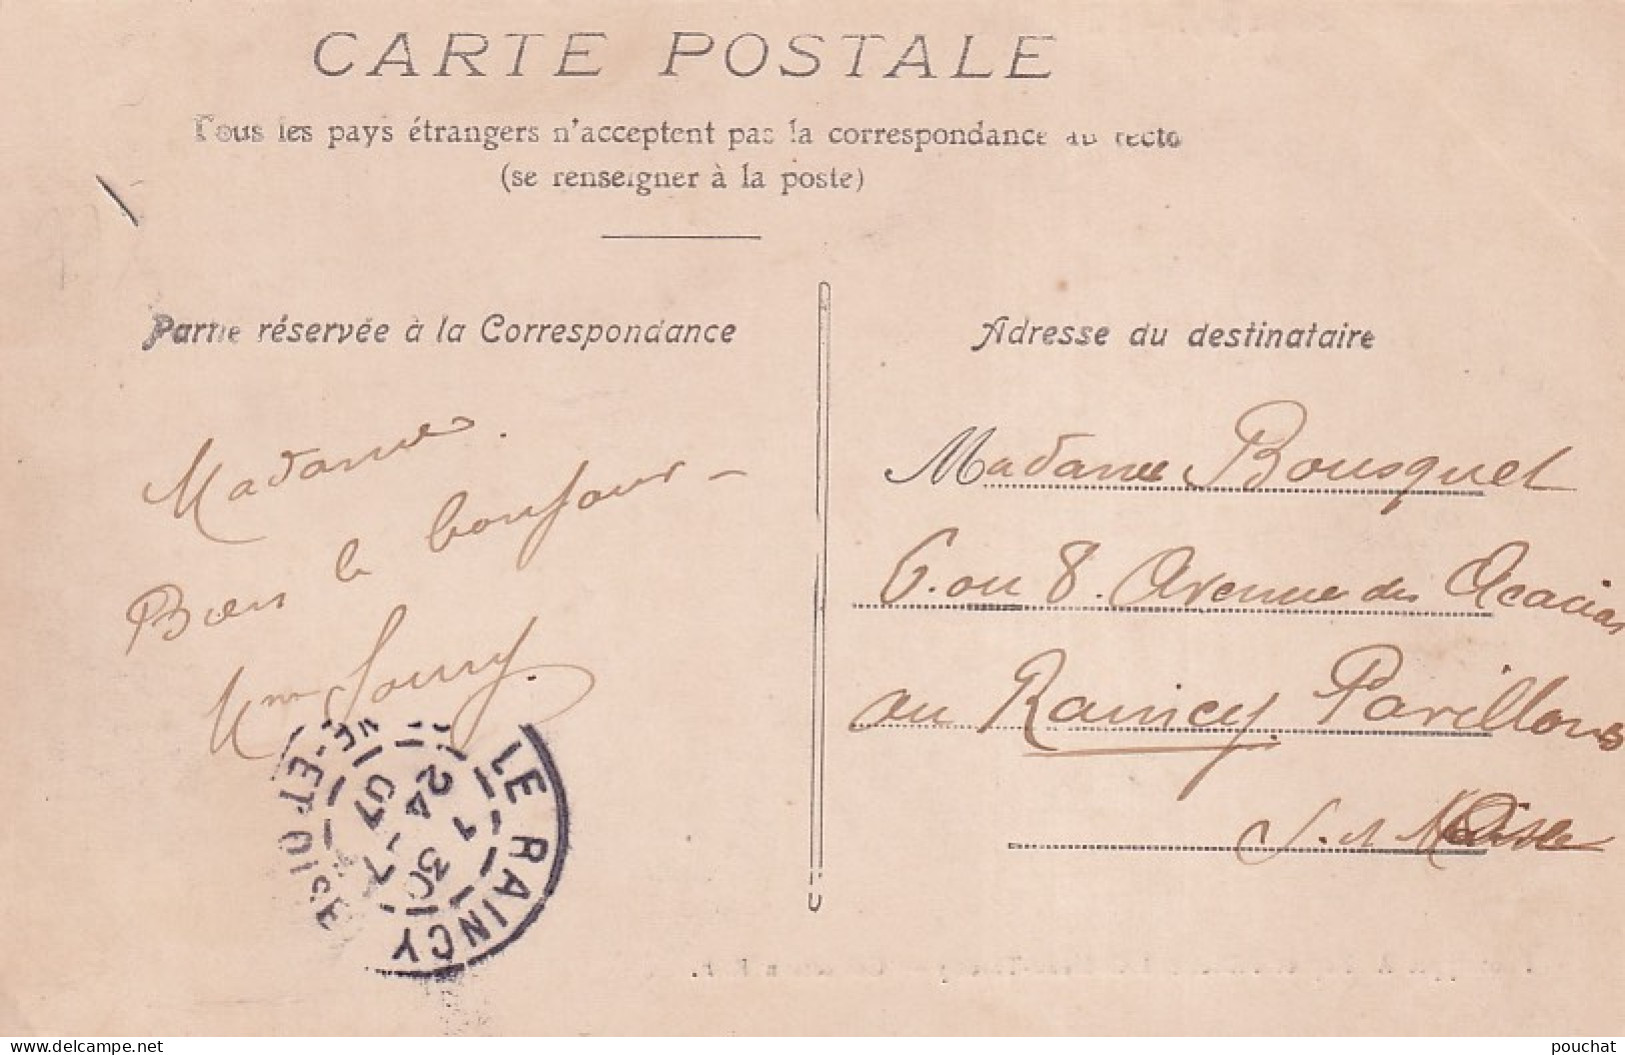 CARTE POSTALE
Tous les pays étrangers n'acceptent pas la correspondance au recto
(se renseigner à la poste)
Partie réservée à la Correspondance
Adresse du destinataire
Madame.
Bien le bonjour –
Madame Bousquet
6. ou 8. Avenue des Acacias
au Raincy. Pavillons
S. et Oise
LE RAINCY
NE-ET-OISE
7 30
24 - 7
07
www.delcampe.net
pouchat